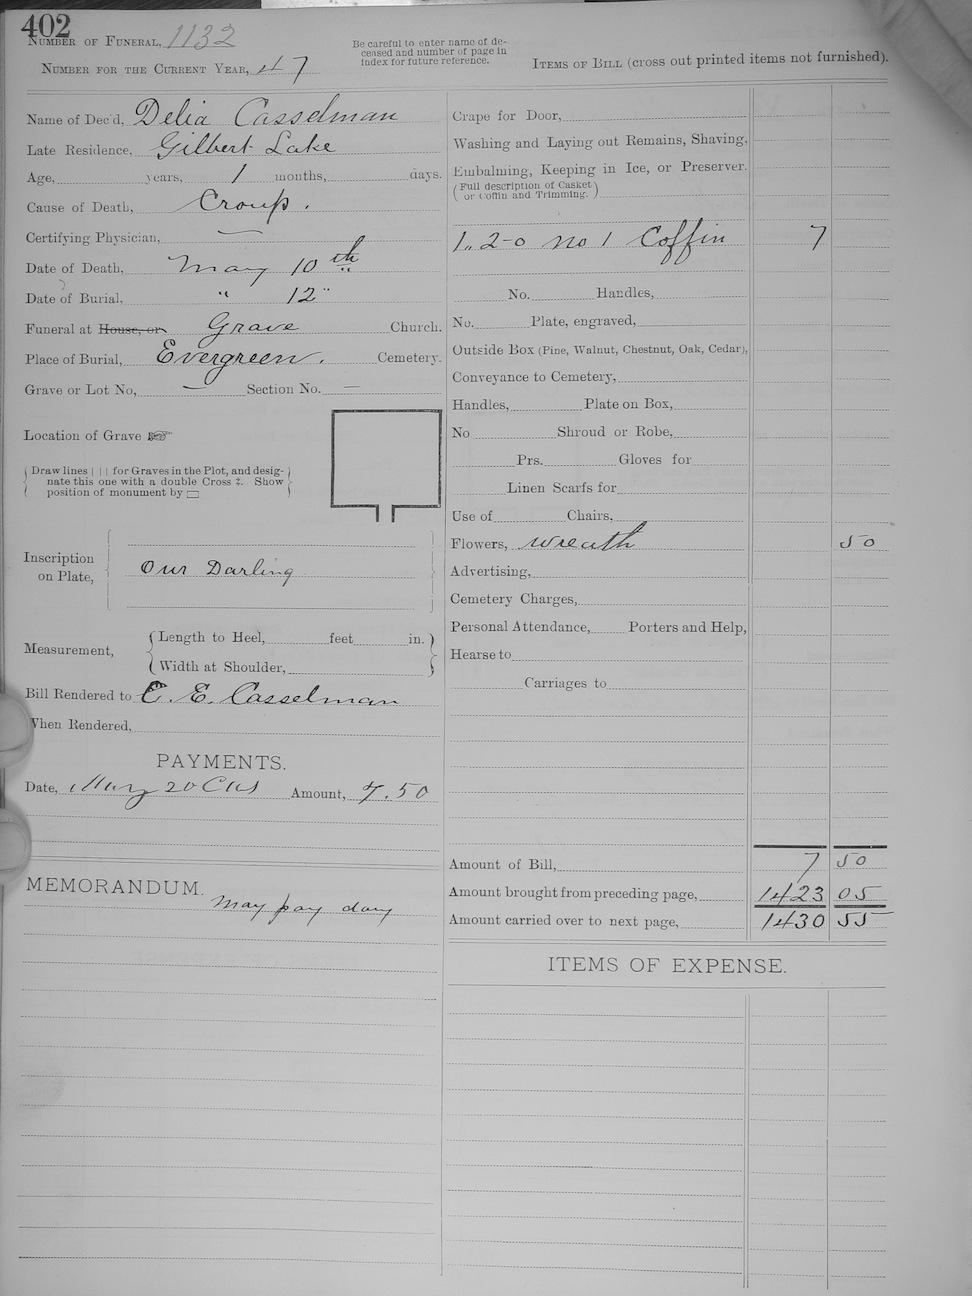 402
Number of Funeral, 1132
Number for the Current Year, 47
Be careful to enter name of de-
ceased and number of page in
index for future reference.
Items of Bill (cross out printed items not furnished).
Name of Dec'd, Delia Casselman
Late Residence, Gilbert Lake
Age, years, 1 months, days.
Cause of Death, Croup.
Certifying Physician, —
Date of Death, May 10th
Date of Burial, " 12"
Funeral at House, or Grave Church.
Place of Burial, Evergreen. Cemetery.
Grave or Lot No, — Section No. —
Location of Grave ☞
Draw lines | | | for Graves in the Plot, and desig-
nate this one with a double Cross ‡. Show
position of monument by ▭
Inscription
on Plate,
Our Darling
Measurement,
Length to Heel, feet in.
Width at Shoulder,
Bill Rendered to C. E. Casselman
When Rendered,
PAYMENTS.
Date, May 20 Amount, 7.50
MEMORANDUM.
May pay day
Crape for Door,
Washing and Laying out Remains, Shaving,
Embalming, Keeping in Ice, or Preserver.
(Full description of Casket
or Coffin and Trimming.)
1,, 2-0 no 1 Coffin 7
No. Handles,
No. Plate, engraved,
Outside Box (Pine, Walnut, Chestnut, Oak, Cedar),
Conveyance to Cemetery,
Handles, Plate on Box,
No Shroud or Robe,
Prs. Gloves for
Linen Scarfs for
Use of Chairs,
Flowers, wreath 50
Advertising,
Cemetery Charges,
Personal Attendance, Porters and Help,
Hearse to
Carriages to
Amount of Bill, 7 50
Amount brought from preceding page, 1423 05
Amount carried over to next page, 1430 55
ITEMS OF EXPENSE.